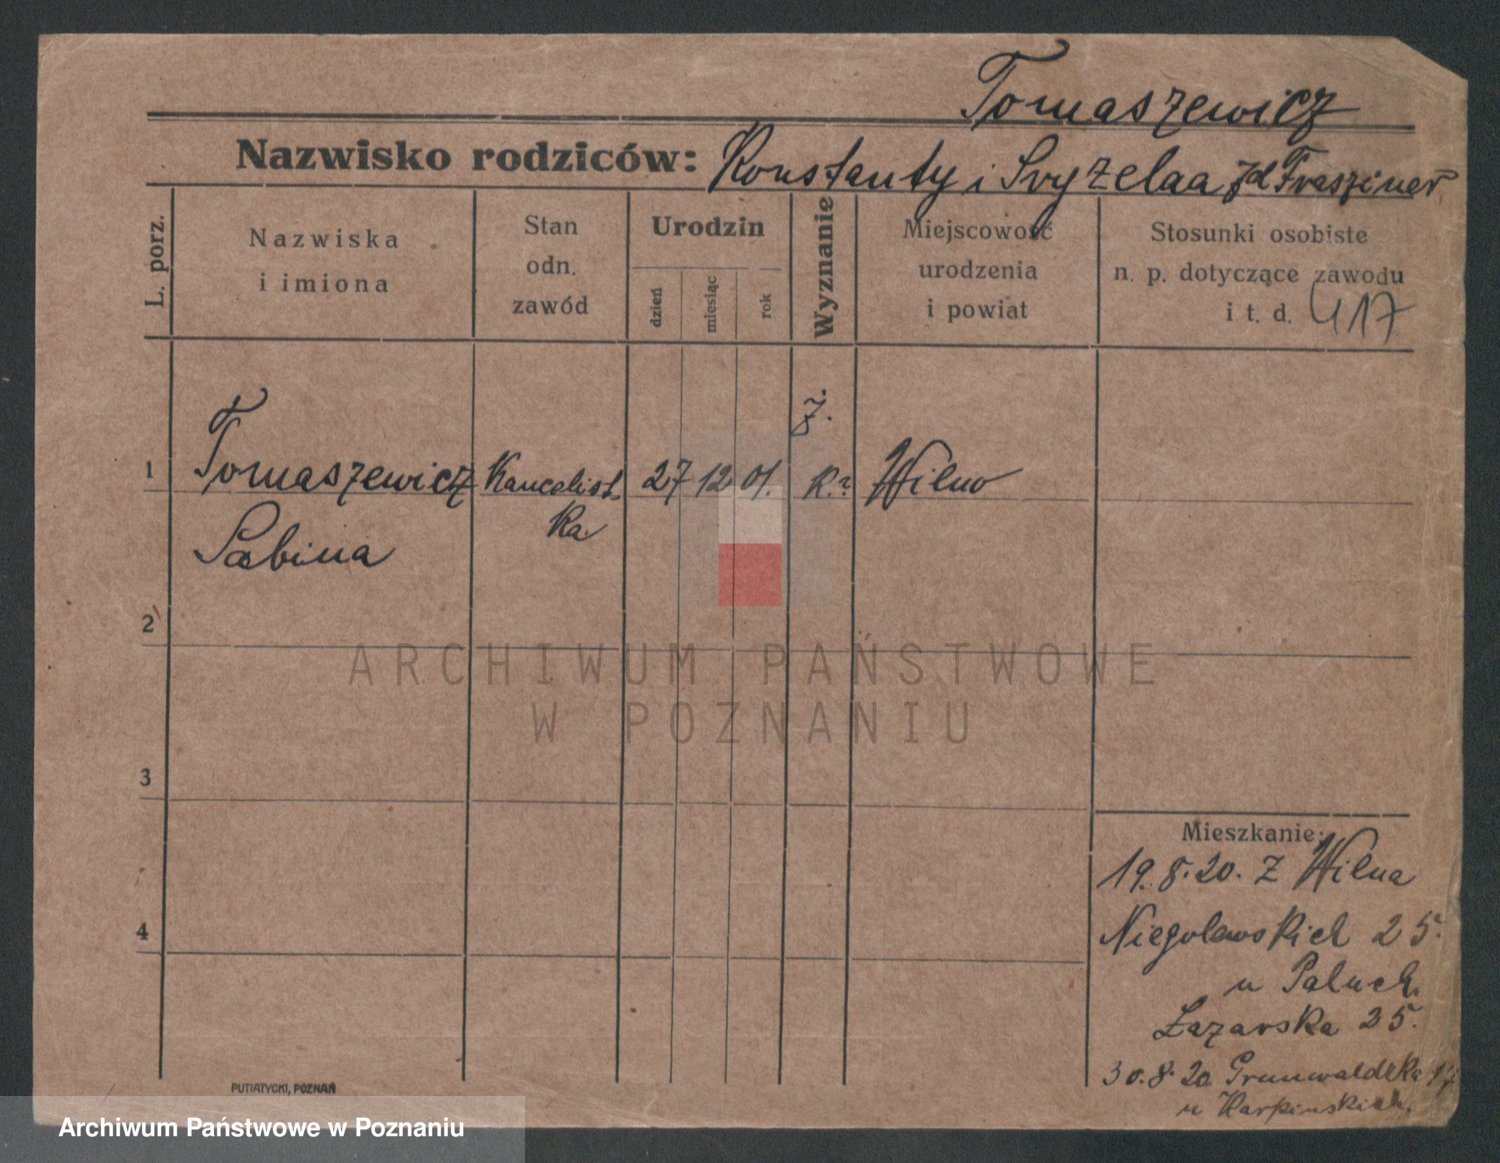 Tomaszewicz
Nazwisko rodziców: Konstanty i
L. porz.
Nazwiska
i imiona
Stan
odn.
zawód
Urodzin
dzień
miesiąc
rok
Wyznanie
Miejscowość
urodzenia
i powiat
Stosunki osobiste
n. p. dotyczące zawodu
i t. d. 417
1 Tomaszewicz Kancelist 27 12 01. Wilno
ka
Sabina
2
3
4
ARCHIWUM PAŃSTWOWE
W POZNANIU
Mieszkanie:
19.8.20. z Wilna
Niegolewskich 25.
u Paluch.
Łazarska 25.
30.8.20 Grunwaldzka
u Karpinskich.
PUTIATYCKI, POZNAŃ
Archiwum Państwowe w Poznaniu